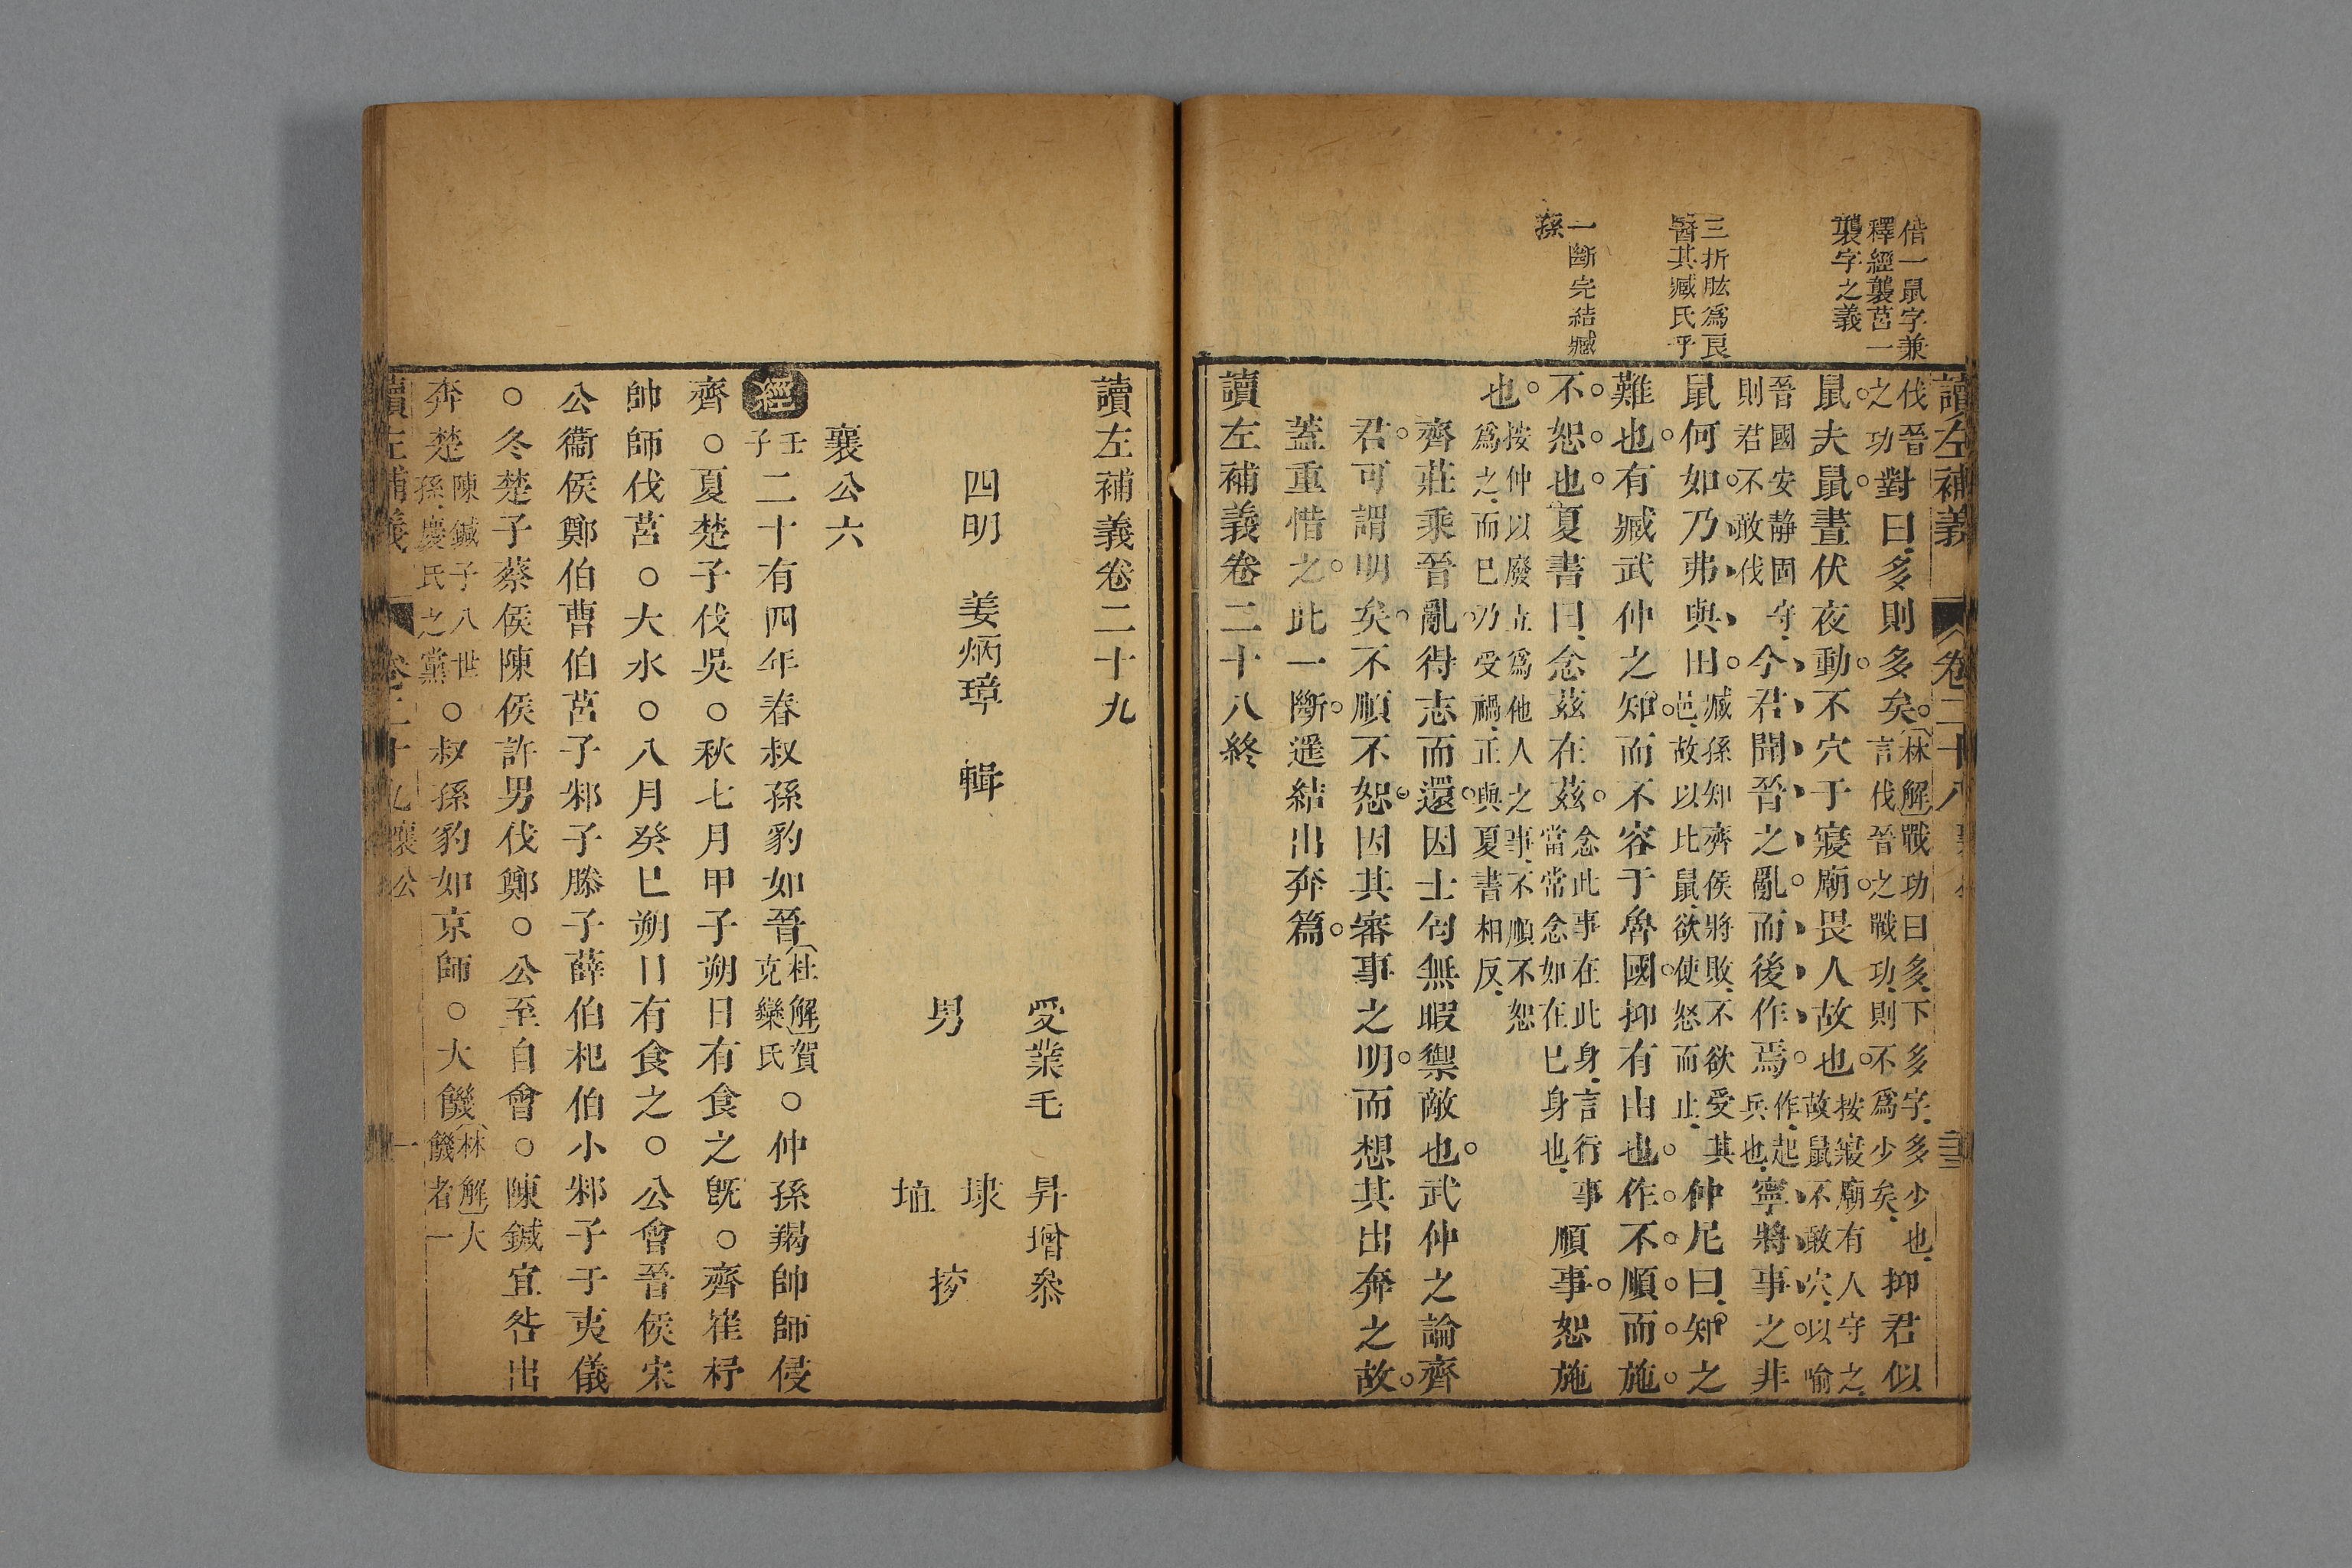 借一鼠字兼
釋經襲莒一
襲字之義
三折肱爲良
醫其臧氏乎
一斷完結臧
孫
讀左補義 卷二十八 襄公
伐晉之功對曰多則多矣〔林解〕戰功曰多下多字多少也言伐晉之戰功則不爲少矣抑君似
鼠夫鼠晝伏夜動不穴于寢廟畏人故也按寢廟有人守之故鼠不敢穴以喻
晉國安靜固守則君不敢伐今君聞晉之亂而後作焉作起兵也寧將事之非
鼠何如乃弗與田臧孫知齊侯將敗不欲受其邑故以比鼠欲使怒而止仲尼曰知之
難也有臧武仲之知而不容于魯國抑有由也作不順而施
不恕也夏書曰念茲在茲念此事在此身言行事當常念如在巳身也順事恕施
也按仲以廢立爲他人之事不順不恕爲之而巳乃受禍正與夏書相反
齊莊乘晉亂得志而還因士匄無暇禦敵也武仲之論齊
君可謂明矣不順不恕因其審事之明而想其出奔之故
蓋重惜之此一斷遥結出奔篇
讀左補義卷二十八終
讀左補義卷二十九
受業毛昇增叅
四明 姜炳璋 輯
男埭㙷埴
襄公六
經壬子二十有四年春叔孫豹如晉〔杜解〕賀克欒氏○仲孫羯帥師侵
齊○夏楚子伐吳○秋七月甲子朔日有食之旣○齊崔杼
帥師伐莒○大水○八月癸巳朔日有食之○公會晉侯宋
公衞侯鄭伯曹伯莒子邾子滕子薛伯杞伯小邾子于夷儀
○冬楚子蔡侯陳侯許男伐鄭○公至自會○陳鍼宜咎出
奔楚陳鍼子八世孫慶氏之黨○叔孫豹如京師○大饑〔林解〕大饑者一
讀左補義 卷二十九 襄公 一